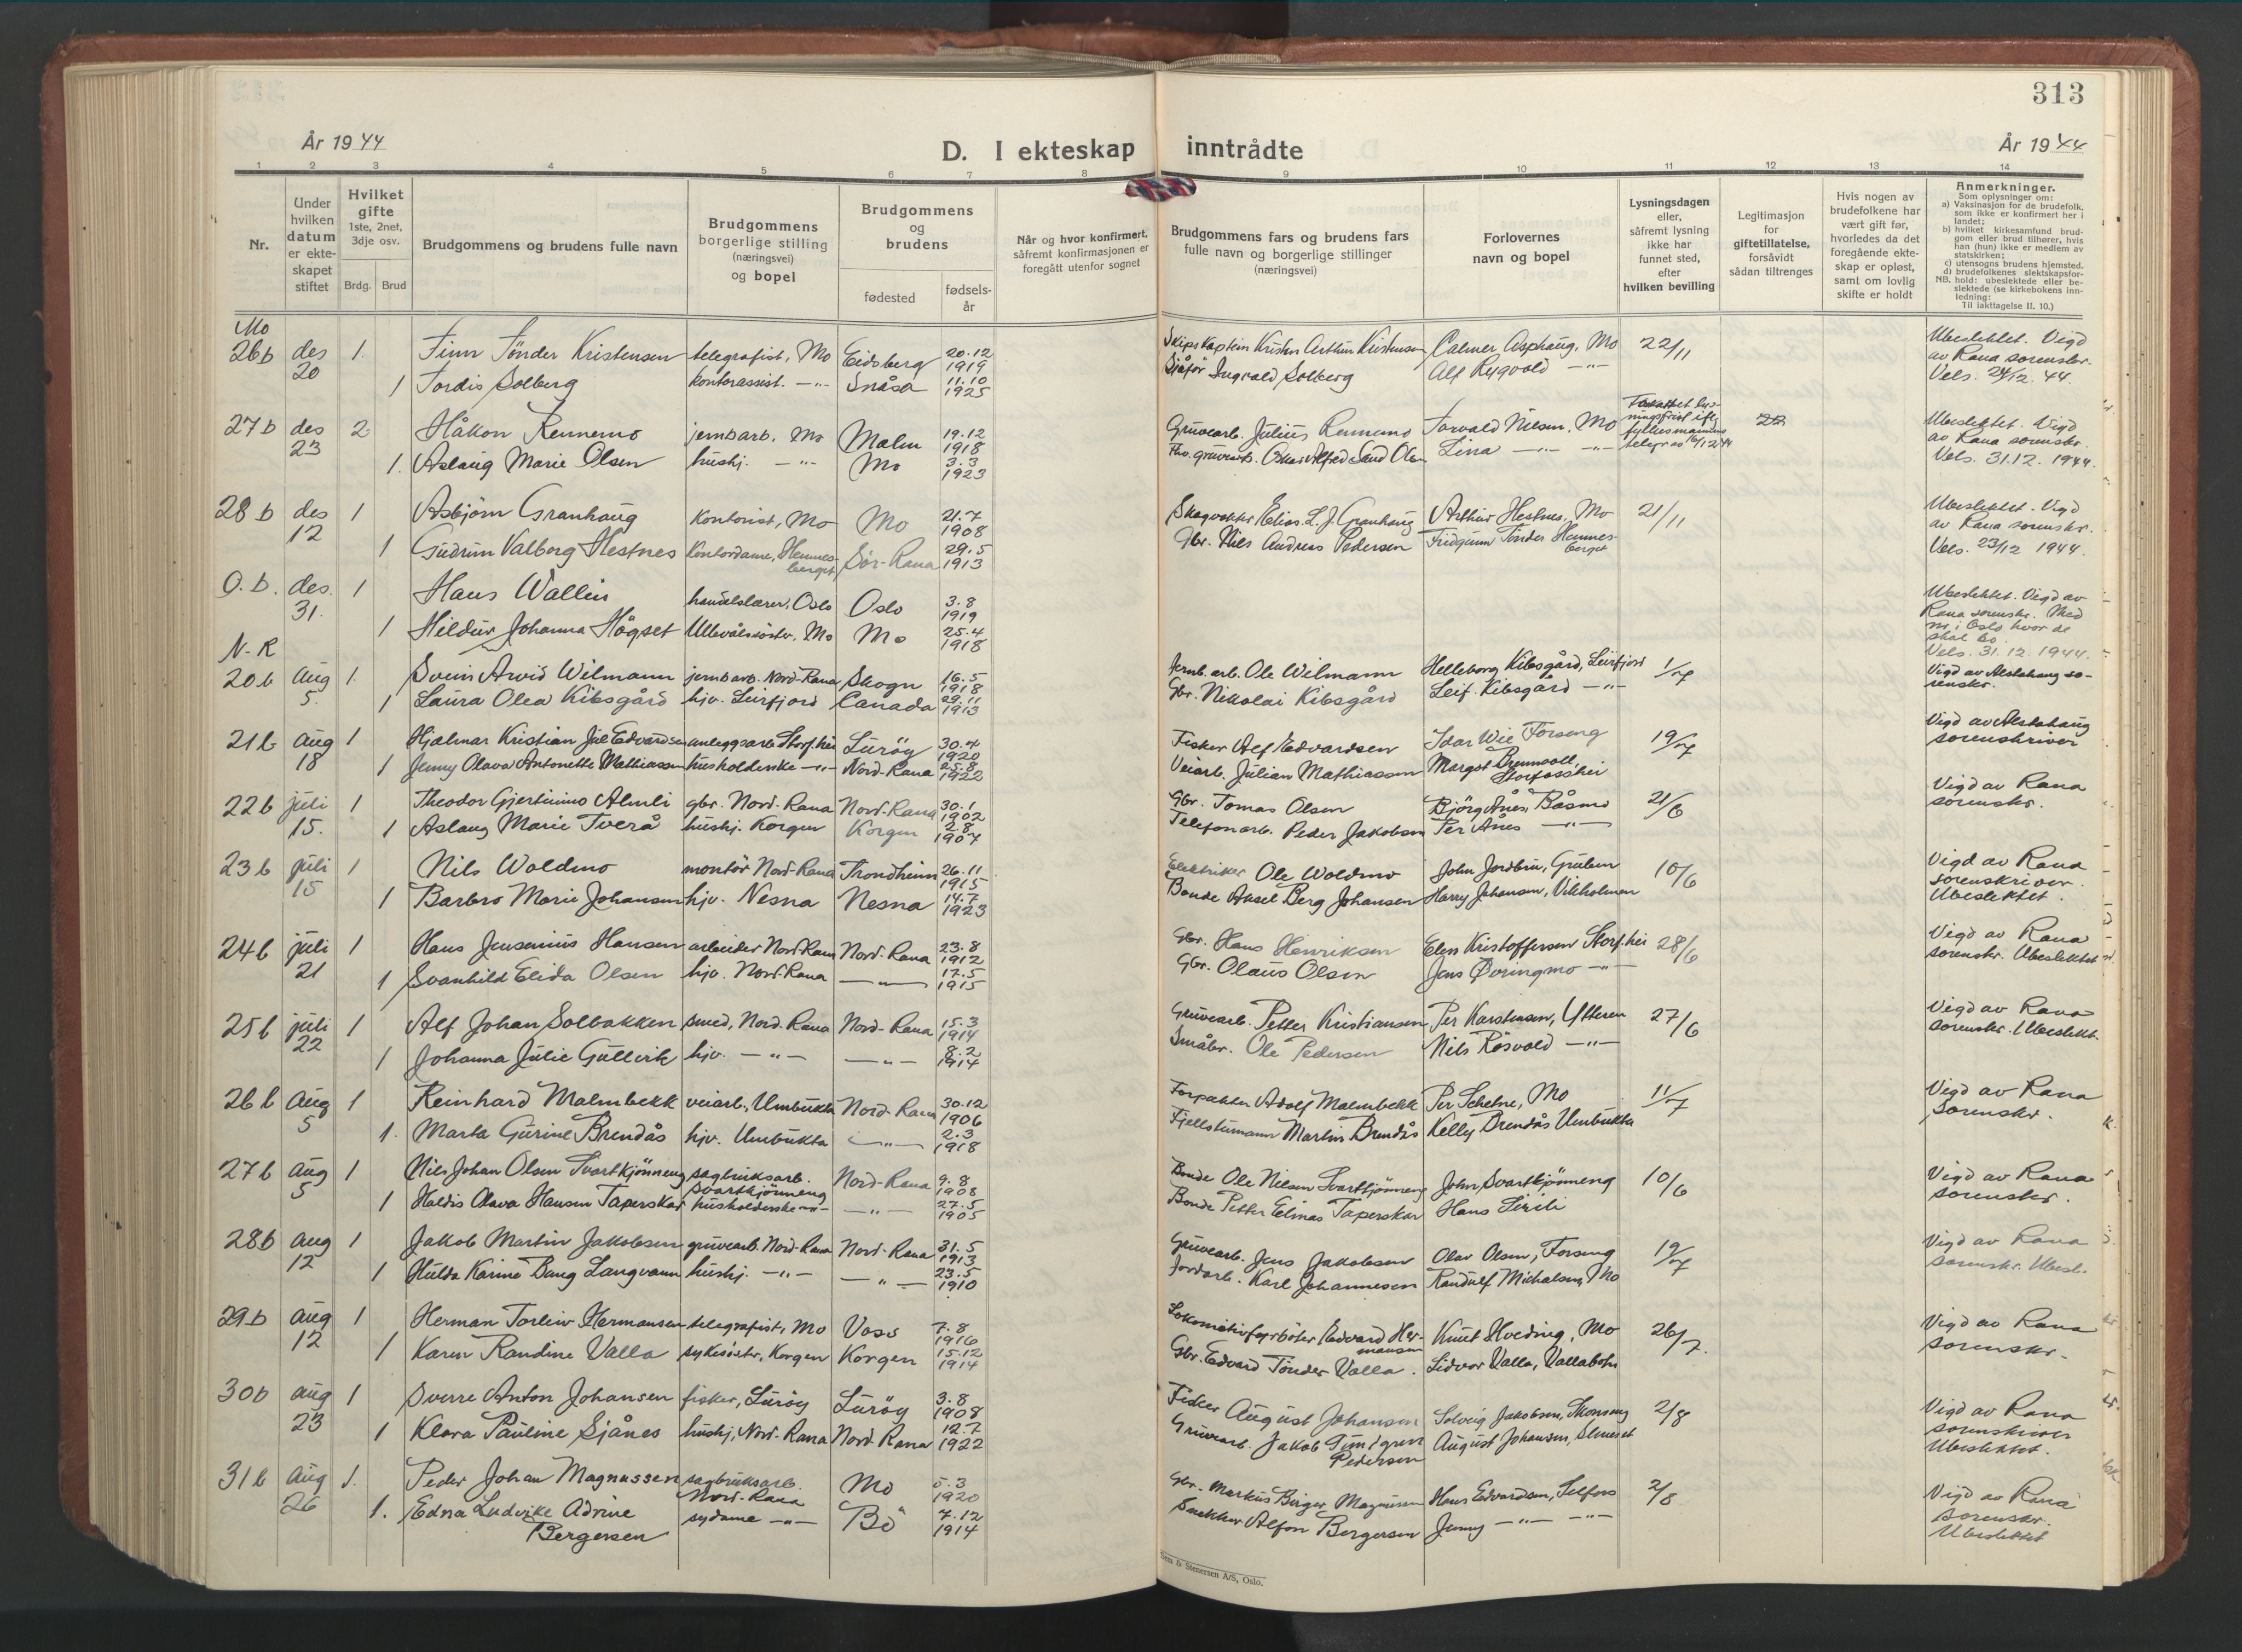 313
År 1944
D. I ekteskap inntrådte
År 1944
1 2 3 4 5 6 7 8 9 10 11 12 13 14
Nr.
Under hvilken datum er ekteskapet stiftet
Hvilket gifte 1ste, 2net, 3dje osv.
Brdg. Brud
Brudgommens og brudens fulle navn
Brudgommens borgerlige stilling (næringsvei) og bopel
Brudgommens og brudens
fødested
fødselsår
Når og hvor konfirmert, såfremt konfirmasjonen er foregått utenfor sognet
Brudgommens fars og brudens fars fulle navn og borgerlige stillinger (næringsvei)
Forlovernes navn og bopel
Lysningsdagen eller, såfremt lysning ikke har funnet sted, efter hvilken bevilling
Legitimasjon for giftetillatelse, forsåvidt sådan tiltrenges
Hvis nogen av brudefolkene har vært gift før, hvorledes da det foregående ekteskap er opløst, samt om lovlig skifte er holdt
Anmerkninger.
Som oplysninger om:
a) Vaksinasjon for de brudefolk, som ikke er konfirmert her i landet;
b) hvilket kirkesamfund brudgom eller brud tilhører, hvis han (hun) ikke er medlem av statskirken;
c) utensogns brudens hjemsted.
d) brudefolkenes slektskapsforhold: ubeslektede eller beslektede (se kirkebokens innledning:
NB.
Til iakttagelse II. 10.)
Mo
26b des 20 1 Finn Tönder Kristensen telegrafist, Mo Eidsberg 20.12 1919 Skipskaptein Kristen Arthur Kristensen Calmer Asphaug, Mo 22/11 Ubeslektet. Vigd av Rana sorenskr. Vels. 24/12. 44.
1 Tordis Solberg kontorassist. -"- Snåsa 11.10 1925 Sjåfør Ingvald Solberg Alf Rygvold -"-
27b des 23 2 Håkon Rennemo jernbarb. Mo Malm 19.12 1918 Gruvearb. Julius Rennemo Torvald Nilsen, Mo Ubeslektet. Vigd av Rana sorenskr. Vels. 31.12. 1944.
1. Aslaug Marie Olsen hushj. -"- Mo 3.3 1923 Fhv. gruvearb. Oskar Alfred Sand Olsen Lina -"- -"-
28b des 12 1 Asbjörn Granhaug kontorist, Mo Mo 21.7 1908 Skogvokter Elias L. J. Granhaug Arthur Hestnes, Mo 21/11 Ubeslektet. Vigd av Rana sorenskr. Vels. 23/12 1944.
1 Gudrun Valborg Hestnes Kontordame, Hemnesberget Sör-Rana 29.5 1913 Gbr. Nils Andreas Pedersen Fridgunn Tönder Hemnesberget
O.b. des. 31. 1 Hans Wallin handelslærer, Oslo Oslo 3.8 1919 Ubeslektet. Vigd av Rana sorenskr. Med nr. i Oslo hvor de skal bo. Vels. 31.12. 1944.
1 Hildur Johanna Högset Ullevålssöster, Mo Mo 25.4 1918
N-R
20b Aug 5 1 Svein Arvid Wilmann jernbarb. Nord-Rana Skogn 16.5 1918 Jernb. arb. Ole Wilmann Helleborg Kibsgård, Leirfjord 1/7 Vigd av Alstahaug sorenskr.
1 Laura Olea Kibsgård hjv. Leirfjord Canada 29.11 1913 Gbr. Nikolai Kibsgård Leif Kibsgård -"-
21b Aug 18 1 Hjalmar Kristian Jul Edvardsen anleggsarb Storf.hei Luröy 30.4 1920 Fisker Alf Edvardsen Idar Wie Forseng 19/7 Vigd av Alstahaug sorenskriver
1 Jenny Olava Antonette Mathiassen husholderske -"- Nord-Rana 25.8 1922 Veiarb. Julian Mathiassen Margot Brennvoll, Storfosshei
22b juli 15. 1 Theodor Gjertinius Almli gbr. Nord-Rana Nord-Rana 30.1 1902 Gbr. Tomas Olsen Björg Ånes, Båsmo 21/6 Vigd av Rana sorenskr.
1 Aslaug Marie Tverå hushj. Korgen Korgen 2.8 1907 Telefonarb. Peder Jakobsen Per Ånes -"-
23b juli 15 1 Nils Woldmo montör Nord-Rana Trondheim 26.11 1915 Elektriker Ole Woldmo John Jordbru, Gruben 10/6 Vigd av Rana sorenskriver. Ubeslektet.
1 Barbro Marie Johansen hjv. Nesna Nesna 14.7 1923 Bonde Aksel Berg Johansen Harry Johansen, Vikholmen
24b juli 21 1 Hans Jensenius Hansen arbeider Nord-Rana Nord-Rana 23.8 1912 Gbr. Hans Henriksen Elen Kristoffersen Storf.hei 28/6 Vigd av Rana sorenskr. Ubeslektet
1 Svanhild Elida Olsen hjv. Nord-Rana -"- 17.5 1915 Gbr. Olaus Olsen Jens Øvringmo -"-
25b juli 22 1 Alf Johan Solbakken smed, Nord-Rana Nord-Rana 15.3 1914 Gruvearb. Petter Kristiansen Per Karstensen, Ytteren 27/6 Vigd av Rana sorenskr. Ubeslekt.
1 Johanna Julie Gullvik hjv. -"- -"- 8.2 1914 Småbr. Ole Pedersen Nils Rösvold -"-
26b Aug 5 1 Reinhard Malmbekk veiarb., Umbukta Nord-Rana 30.12 1906 Forpakter Adolf Malmbekk Per Schetne, Mo 11/7 Vigd av Rana sorenskr.
1. Marta Gurine Brendås hjv. Umbukta -"- 2.3 1918 Fjellstumann Martin Brendås Kelly Brendås Umbukta
27b aug 5 1 Nils Johan Olsen Svartkjönneng sagbruksarb. Svartkjönneng Nord-Rana 9.8 1908 Bonde Ole Nilsen Svarttjönneng John Svarttjönneng 10/6 Vigd av Rana sorenskr.
1 Haldis Olava Hansen Taperskar husholderske -"- -"- 27.5 1905 Bonde Petter Elinas Taperskar Hans Lirili
28b aug 12 1 Jakob Martin Jakobsen gruvearb. Nord-Rana Nord-Rana 31.5 1913 Gruvearb. Jens Jakobsen Olav Olsen, Forseng 19/7 Vigd av Rana sorenskr. Ubesl.
1 Hulda Karine Bang Langvann hushj. -"- -"- 23.5 1910 Jordarb. Karl Johannesen Randulf Michalsen, Mo
29b aug 12 1 Herman Torleiv Hermansen telegrafist, Mo Voss 7.8 1916 Lokomotivfyrböter Edvard Hermansen Knut Hveding, Mo 26/7. Vigd av Rana sorenskr.
1 Karen Randine Valla sykesöster, Korgen Korgen 15.12 1914 Gbr. Edvard Tönder Valla. Lidvor Valla, Vallabotn
30b aug 23 1 Sverre Anton Johansen fisker, Luröy Luröy 3.8 1908 Fisker August Johansen Solveig Jakobsen, Skonseng 2/8 Vigd av Rana sorenskriver Ubeslektet.
1 Klara Pauline Sjånes hushj, Nord-Rana Nord-Rana 12.7 1922 Gruvearb. Jakob Pedersen August Johansen,
31b Aug 26 1. Peder Johan Magnussen sagbruksarb. Nord-Rana Mo 5.3 1920 Gbr. Markus Birger Magnussen Hans Edvardsen, Selfors 2/8 Vigd av Rana sorenskr. Ubeslektet
1. Edna Ludvike Adrine Bergersen sydame -"- Bö 7.12 1914 Snekker Alfon Bergersen Jenny -"- -"-
Sem & Stenersen A/S, Oslo.